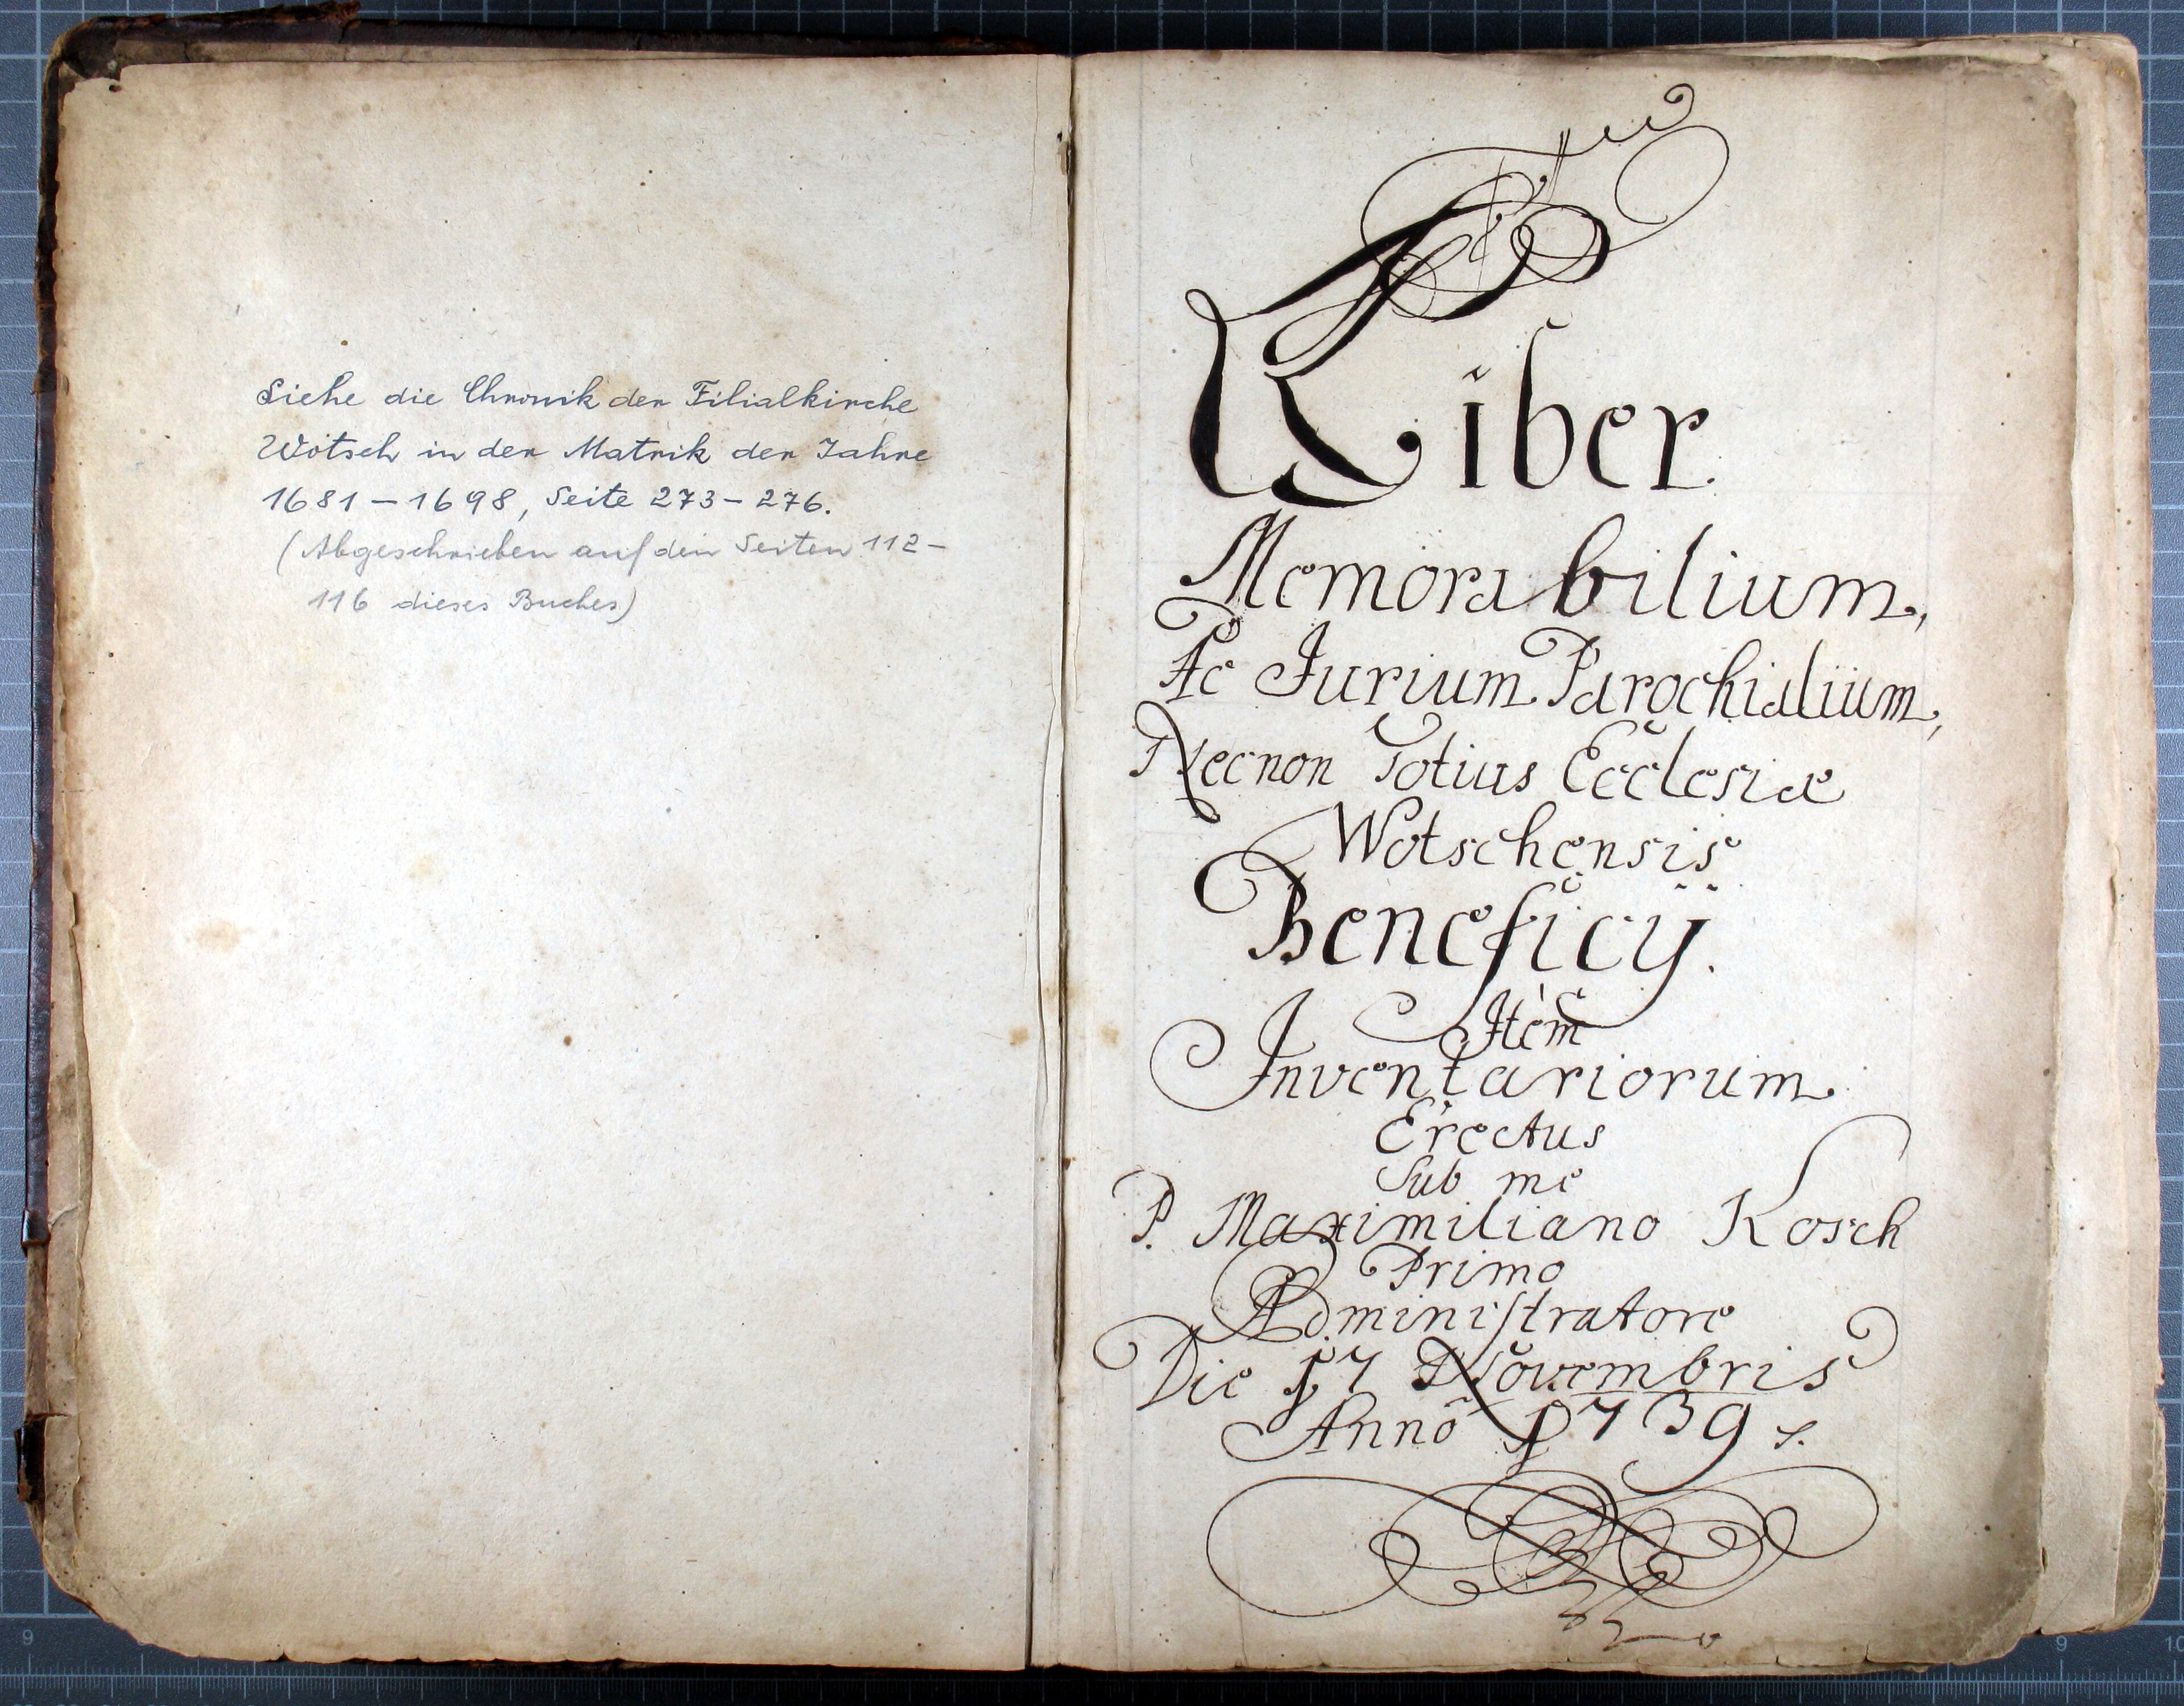 Siehe die Chronik der Filialkirche
Wotsch in der Matrik der Jahre
1681 – 1698, Seite 273 – 276.
(Abgeschrieben auf den Seiten 112 –
116 dieses Buches)
Liber
Memorabilium,
Ac Jurium Parochialium,
Necnon Totius Ecclesiæ
Wotschensis
Beneficÿ.
Itèm
Inventariorum
Erectus
Sub me
P. Maximiliano Kosch
Primo
Administratore
Die 17 Novembris
Annô 1739
9
9
10